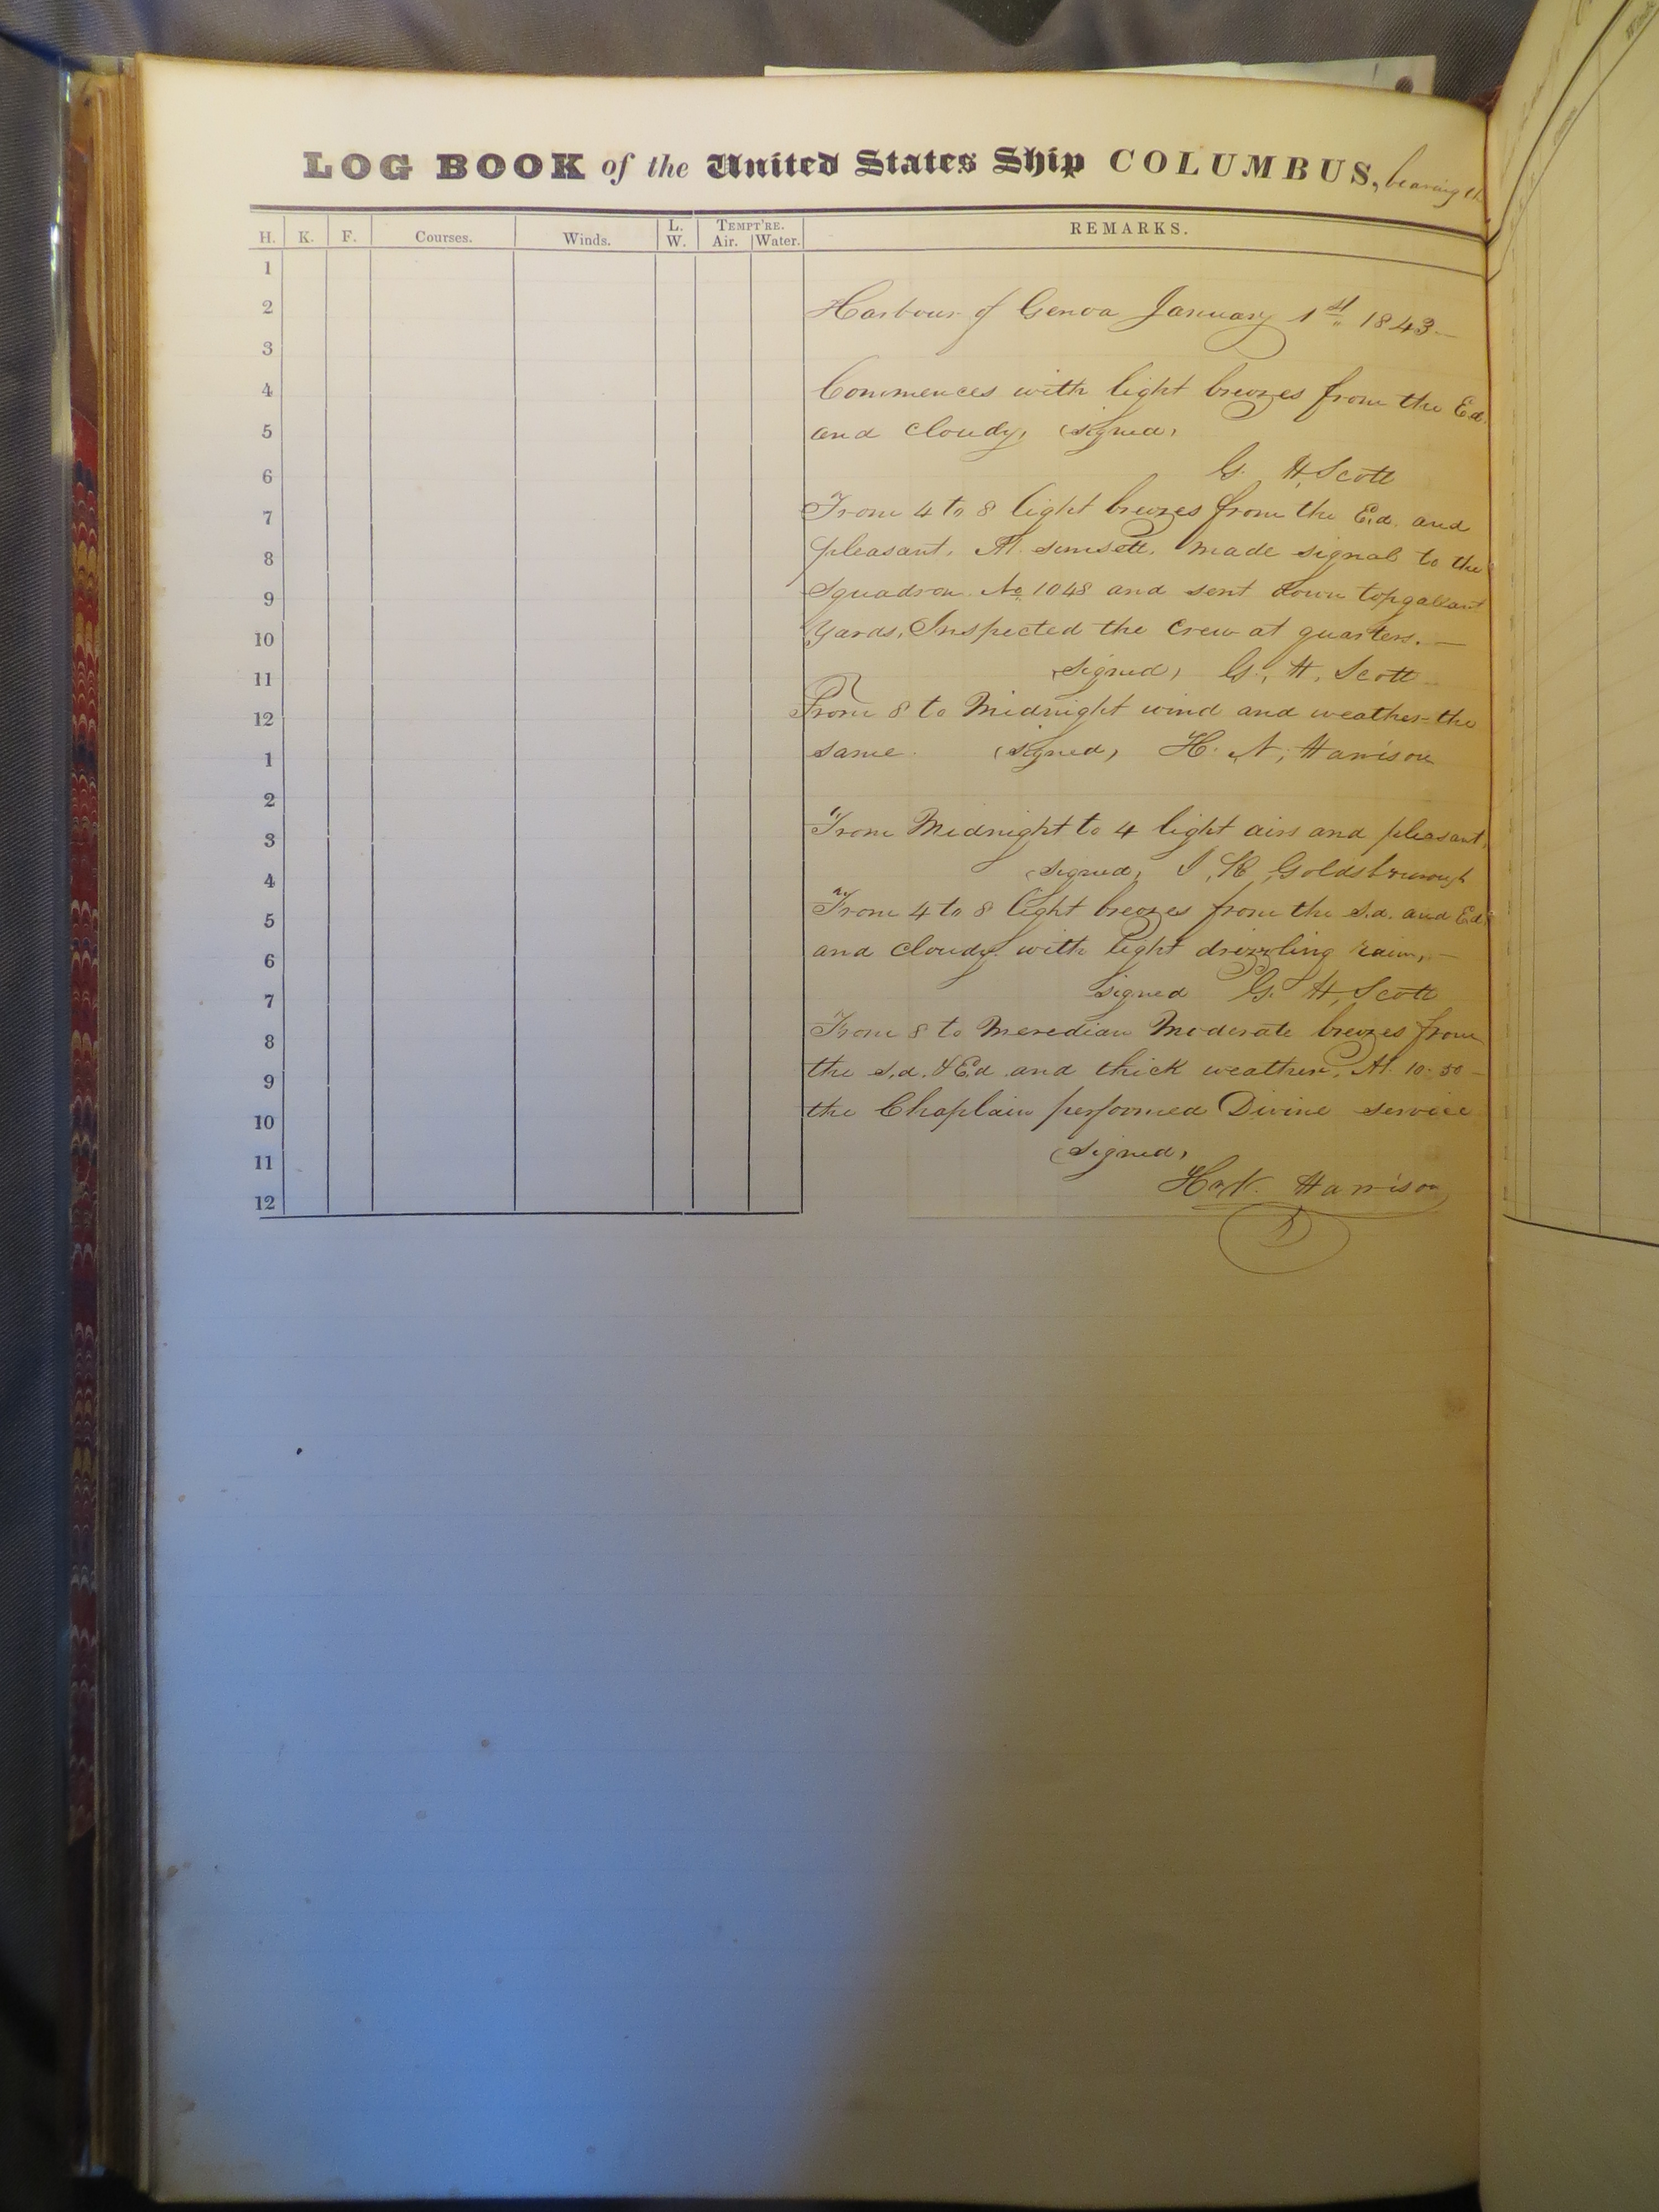 LOG BOOK of the United States Ship COLUMBUS, bearing
H. K. F. Courses. Winds. L. W. TEMPT'RE. Air. Water. REMARKS.
1
2 Harbour of Genoa January 1st 1843 —
3
4 Commences with light breezes from the Ed.
5 and cloudy, (signed,
6 G. H. Scott
7 From 4 to 8 light breezes from the Ed. and
8 pleasant. At sunsett. made signal to the
9 Squadron No 1048 and sent down topgallant
10 Yards. Inspected the crew at quarters. —
11 (signed, G. H. Scott
12 From 8 to Midnight wind and weather the
1 same. (signed, H. N. Harrison
2
3 From Midnight to 4 light airs and pleasant,
4 (signed, J. R. Goldsborough
5 From 4 to 8 light breezes from the S.d. and Ed
6 and cloudy with light drizzling rain, —
7 signed G. H. Scott
8 From 8 to Meredian Moderate breezes from
9 the S.d. & Ed and thick weather. At 10.30 —
10 the Chaplain performed Divine service
11 (signed,
12 H. N. Harrison